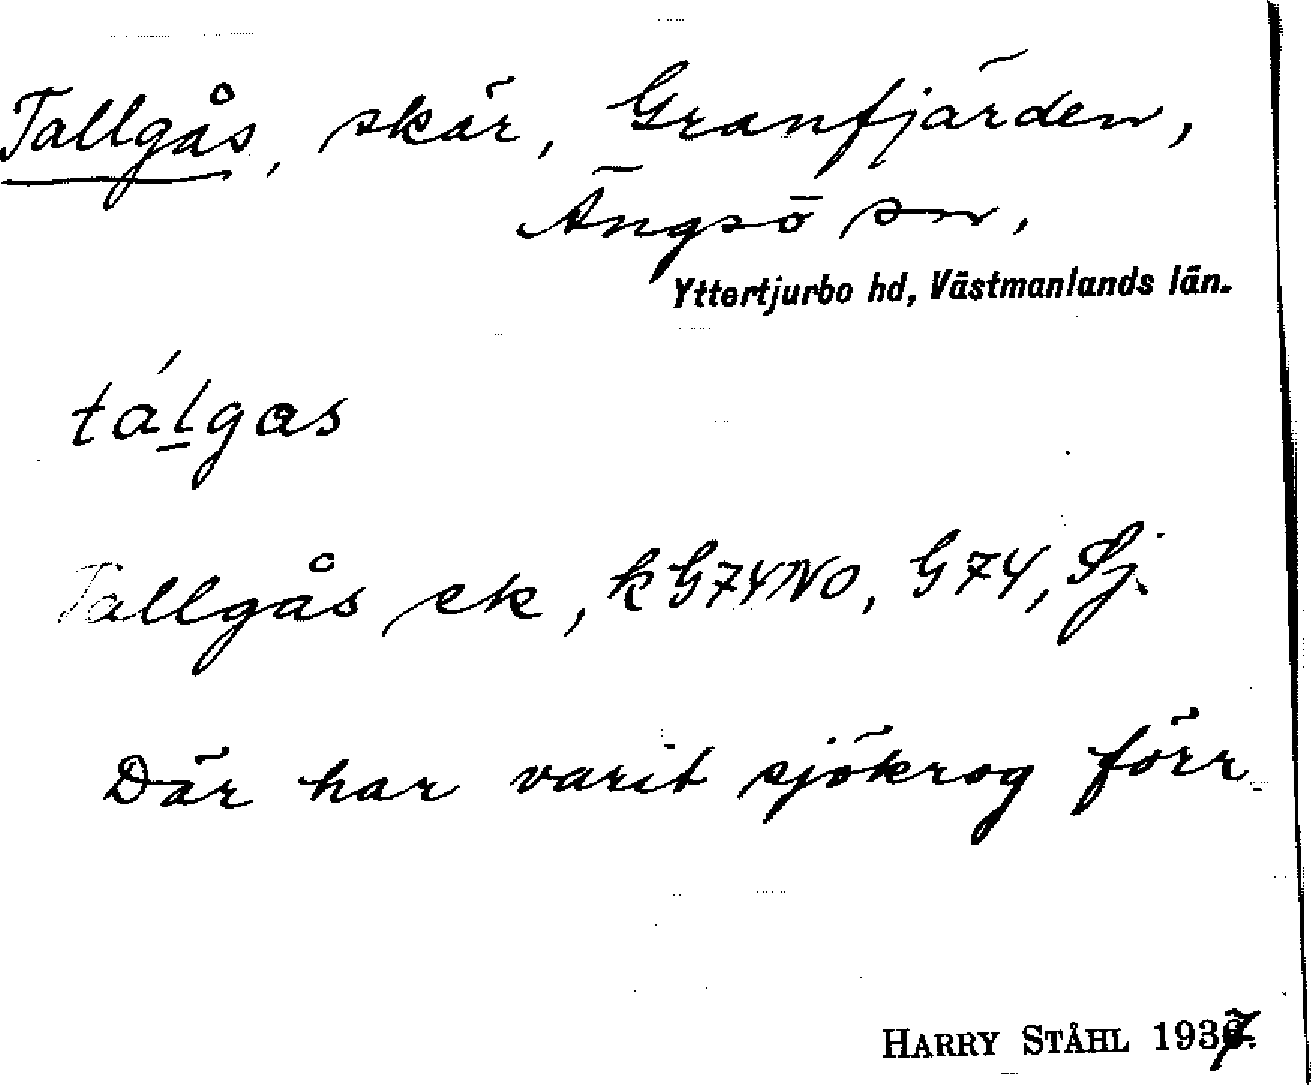 Tallgås, skär, Granfjärden,
Ängsö sn,
Yttertjurbo hd, Västmanlands län.
tálgas
Tallgås ek, kG74NO, G74, Sj.
Där har varit sjökrog förr
HARRY STÅHL 1937.